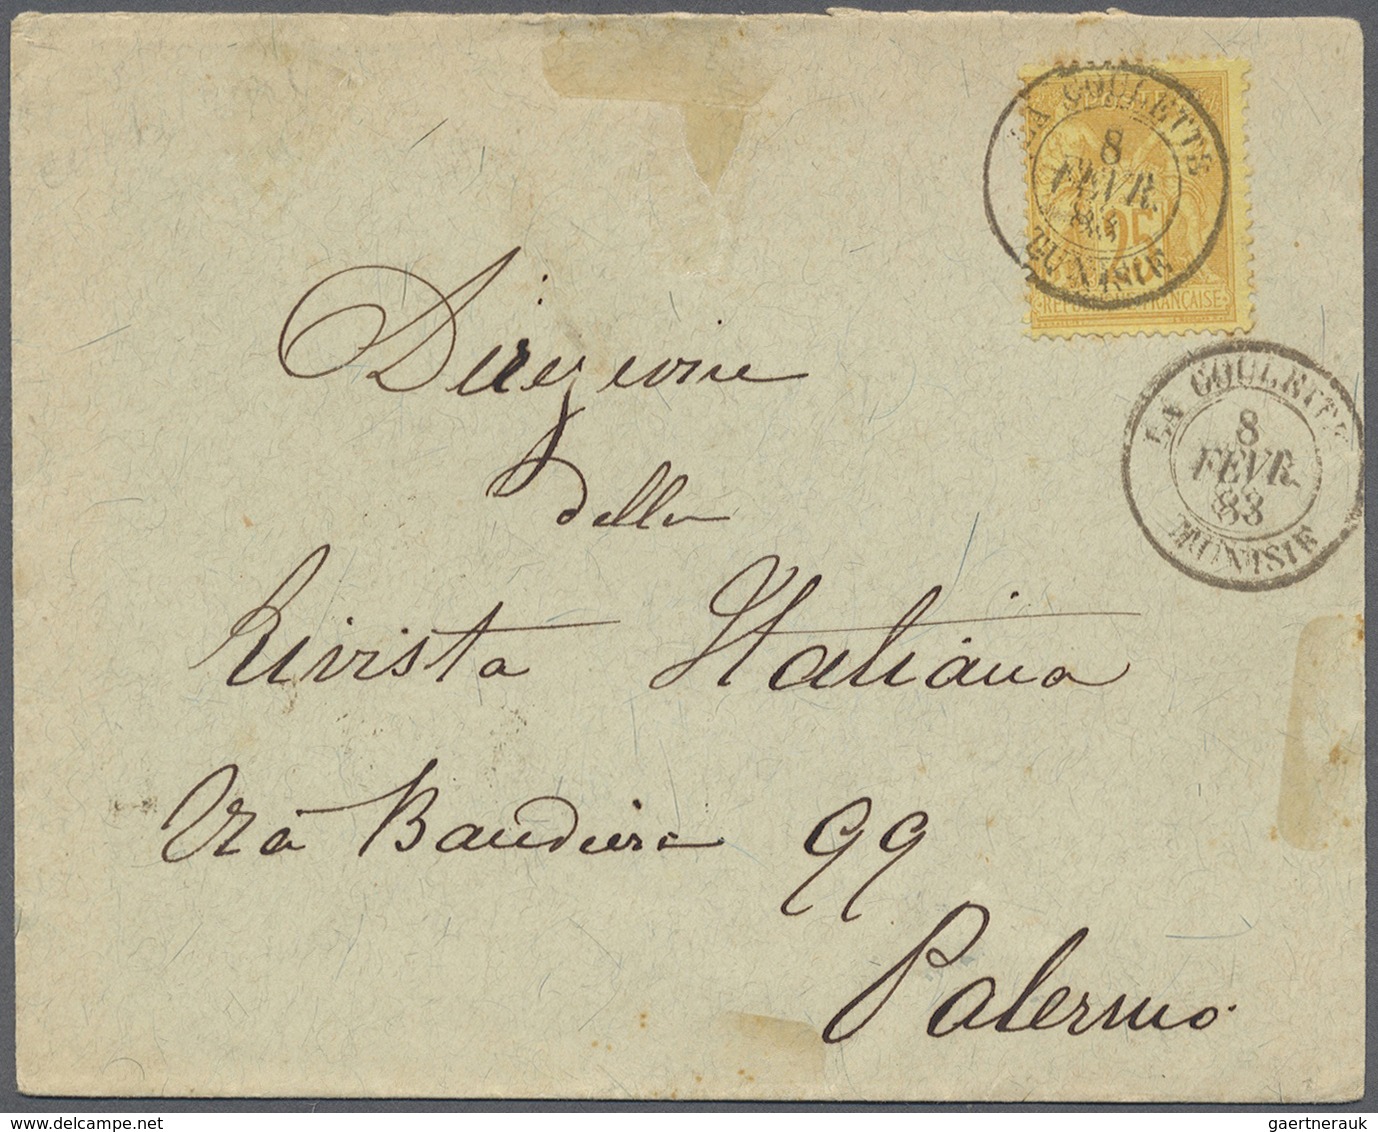 LA GOULETTE
8
FEVR.
83
TUNISIE
25
REPUBLIQUE FRANCAISE
LA GOULETTE
8
FEVR.
83
TUNISIE
Direzione
della
Rivista Italiana
Via Bandiera 99
Palermo
delcampe.net
gaertnerauk